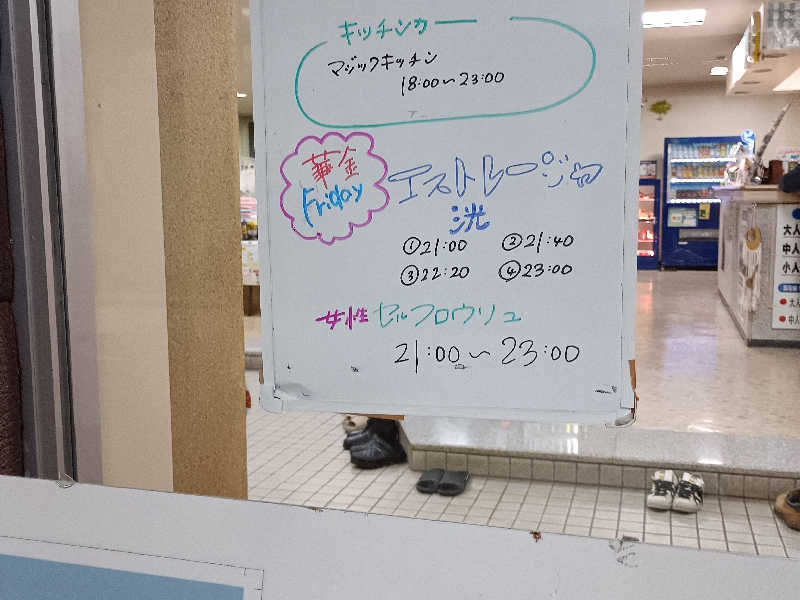 キッチンカー
マジックキッチン
18:00～23:00
華金
Friday
エストレージャ
洸
①21:00 ②21:40
③22:20 ④23:00
女性 セルフロウリュ
21:00～23:00
大人
中人
小人
大人
中人